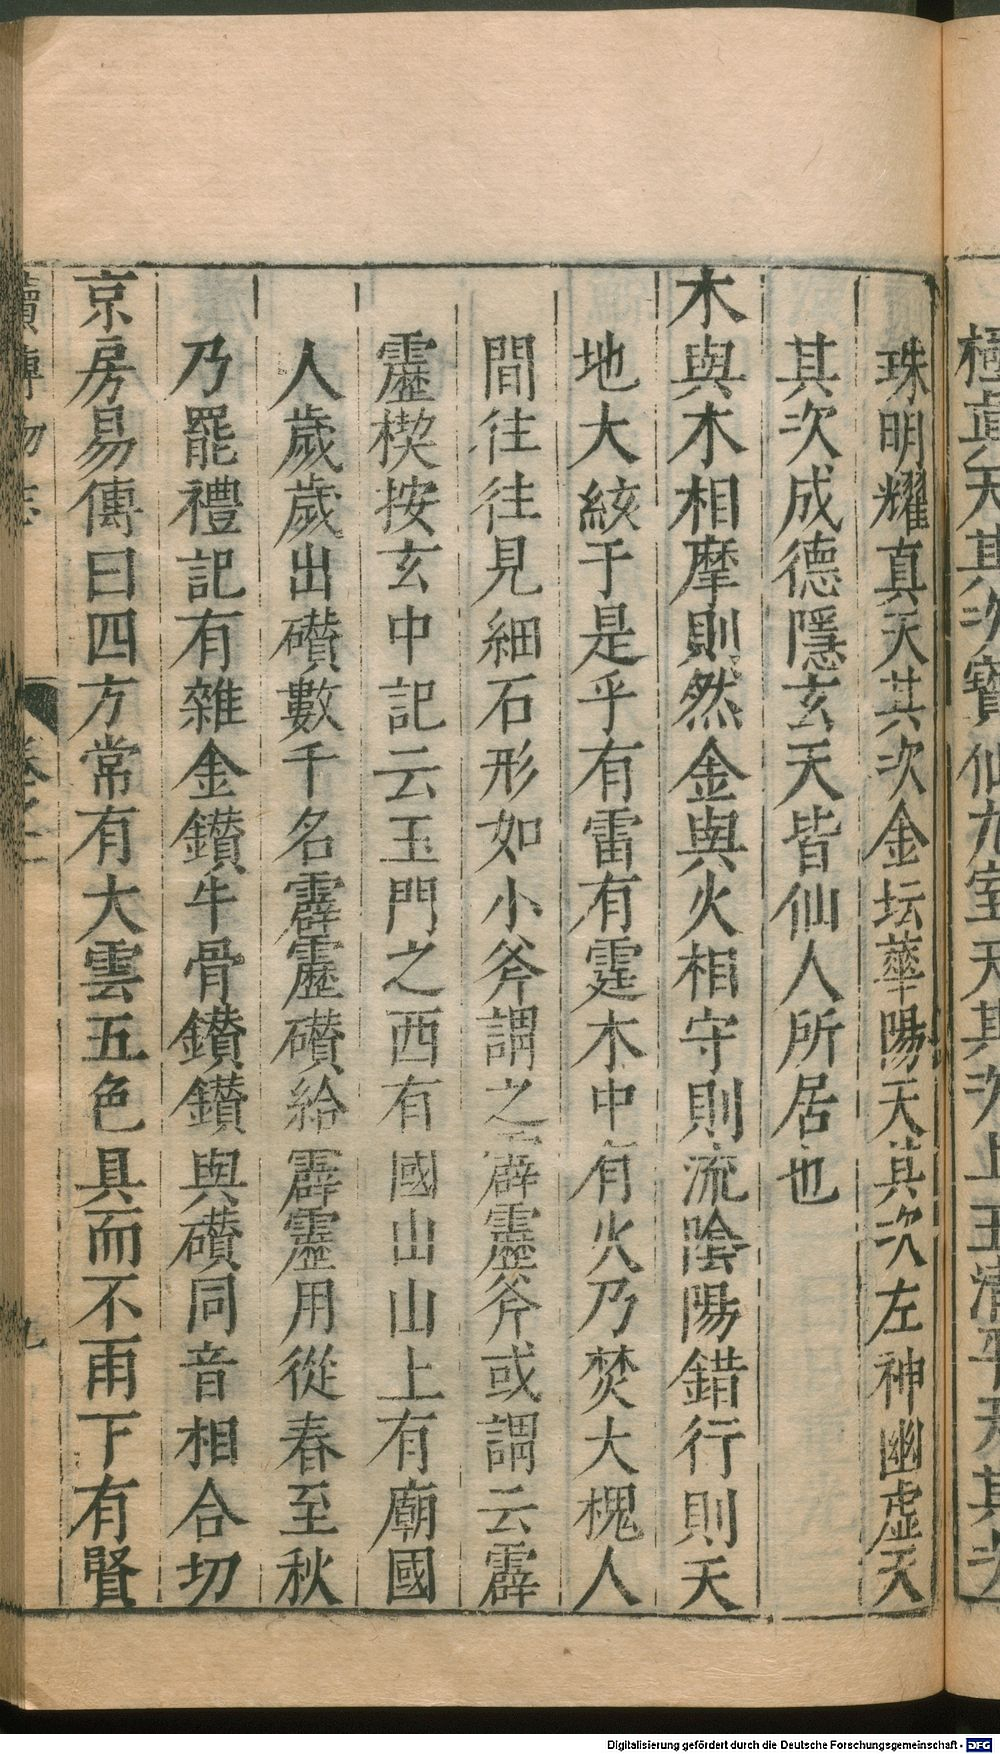 極真天其次寳仙九室天其次上玉清平天其次
珠明耀真天其次金坛華陽天其次左神幽虚天
其次成德隱玄天皆仙人所居也
木與木相摩則然金與火相守則流陰陽錯行則天
地大絯于是乎有雷有霆木中有火乃焚大槐人
間往往見細石形如小斧謂之霹靂斧或謂云霹
靂楔按玄中記云玉門之西有國山山上有廟國
人歲歲出礸數千名霹靂礸給霹靂用從春至秋
乃罷禮記有雜金鑚牛骨鑚鑚與礸同音相合切
京房易傳曰四方常有大雲五色具而不雨下有賢
續博物志 卷之一 九
Digitalisierung gefördert durch die Deutsche Forschungsgemeinschaft - DFG